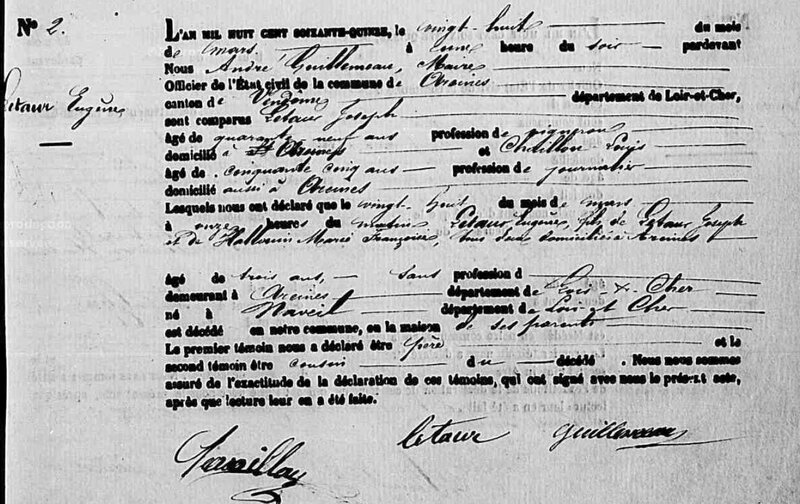 N° 2.
Letaur Eugène
L'AN MIL HUIT CENT SOIXANTE-QUINZE, le vingt huit du mois
de mars à une heure du soir pardevant
Nous André Guillemeau, Maire
Officier de l'État civil de la commune de Areines
canton de Vendôme département de Loir-et-Cher,
sont comparus Letaur Joseph
Agé de quarante neuf ans profession de vigneron
domicilié à Areines et Louis
Agé de cinquante cinq ans profession de journalier
domicilié aussi à Areines
Lesquels nous ont déclaré que le vingt-huit du mois de mars
à onze heures du matin Letaur Eugène, fils de Letaur Joseph
et de Marie Françoise, tous deux domiciliés à Areines
Agé de trois ans, sans profession d
demeurant à Areines département de Loir & Cher
né à Naveil département de Loir et Cher
est décédé en notre commune, en la maison de ses parents
Le premier témoin nous a déclaré être père et le
second témoin être cousin du décédé. Nous nous sommes
assuré de l'exactitude de la déclaration de ces témoins, qui ont signé avec nous le présent acte,
après que lecture leur en a été faite.
letaur Guillemeau